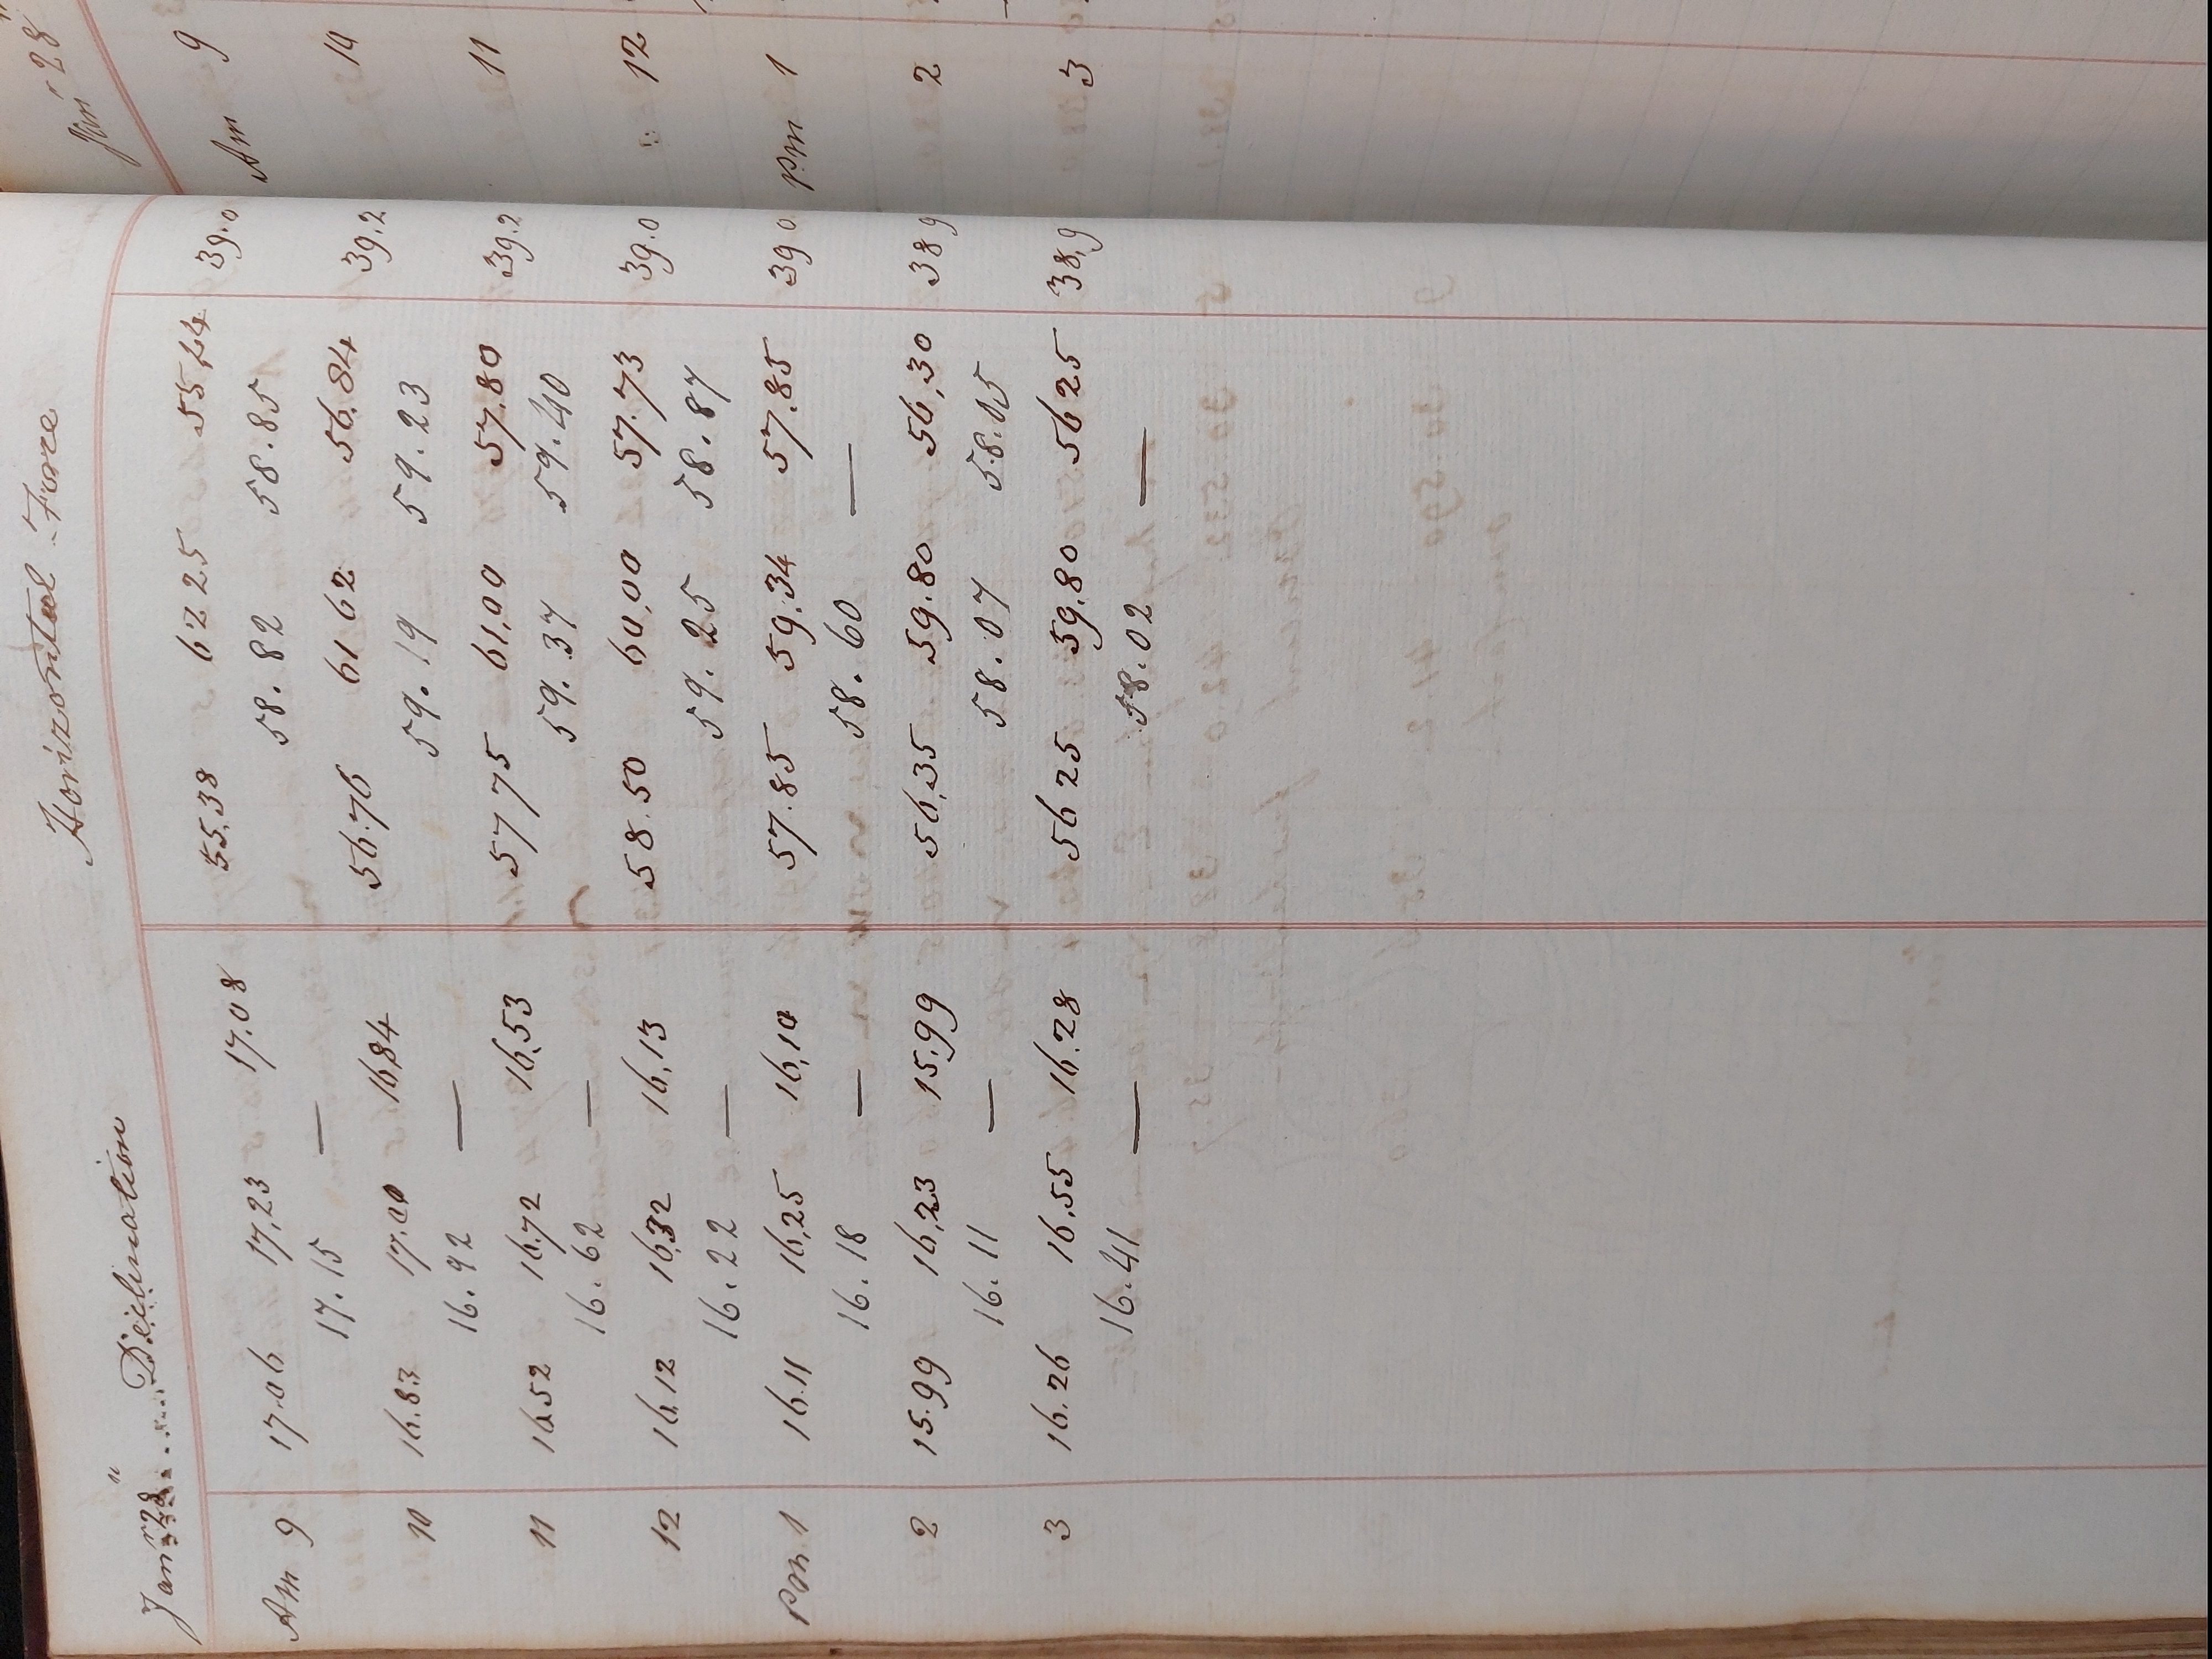 Horizontal Force
Janr 28" Declination
Am 9 17.06 17,23 17.08 55,38 62 25 55,44 39.0
17.15 — 58.82 58.85
10 16.83 17.00 16,84 56.76 61 62 56.84 39.2
16.92 — 59.19 59.23
11 16.52 16.72 16,53 57 75 61,00 57.80 39.2
16.62 — 59.37 59.40
12 16,12 16,32 16,13 58.50 60,00 57.73 39.0
16.22 — 59.25 58.87
Pm 1 16.11 16,25 16,10 57.85 59,34 57,85 39 0
16.18 — 58.60 —
2 15.99 16,23 15.99 56,35 59.80 56,30 38 9
16.11 — 58.07 58.05
3 16.26 16,55 16.28 56 25 59,80 56 25 38,9
16.41 — 58.02 —
Janr 28"
Am 9
10
11
12
Pm 1
2
3